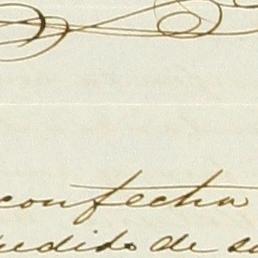 confecha
pedido de